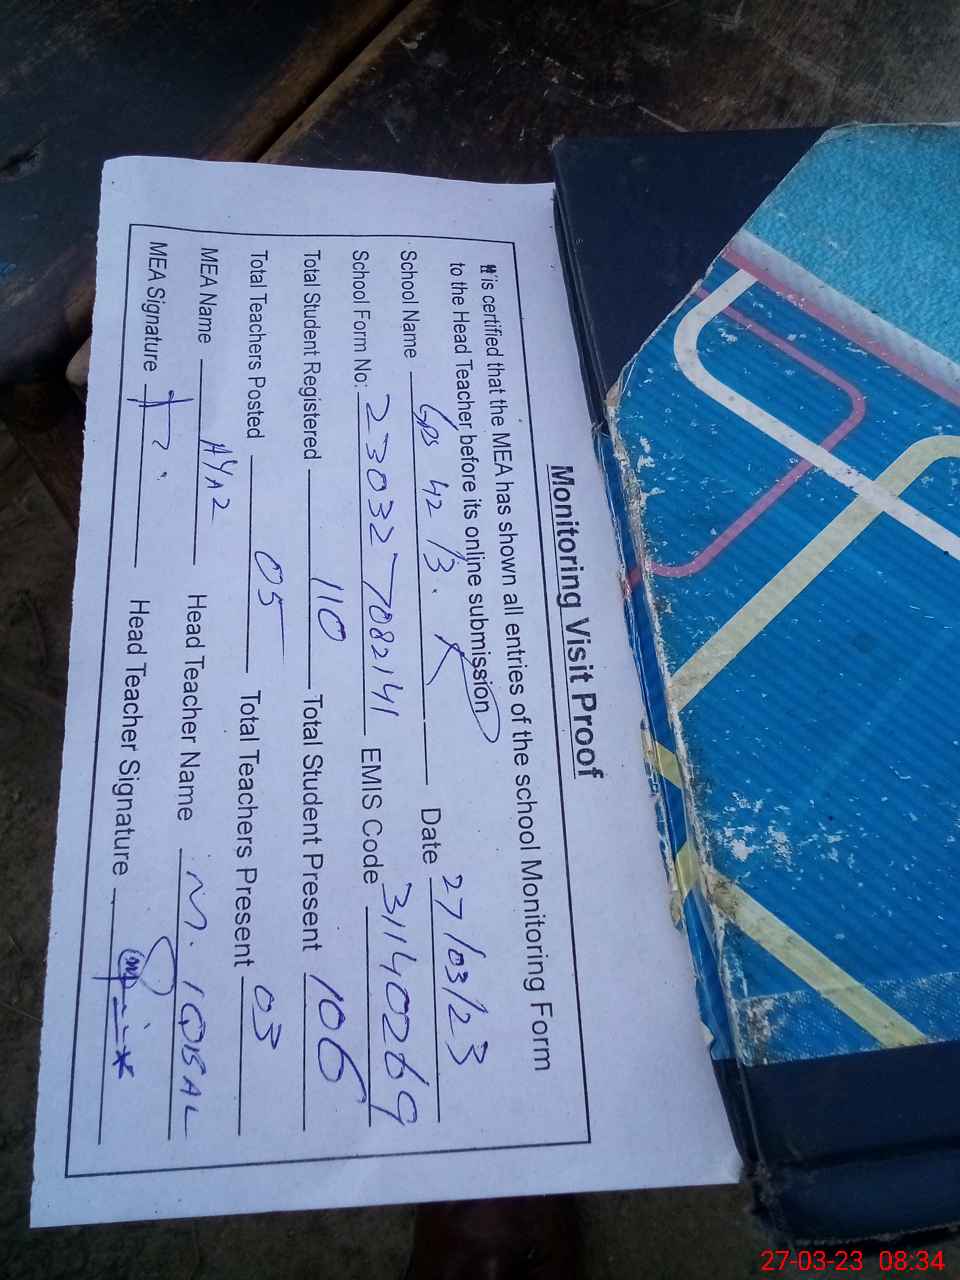 Monitoring Visit Proof
It is certified that the MEA has shown all entries of the school Monitoring Form
to the Head Teacher before its online submission
School Name GPS 42/3. R Date 27/03/23
School Form No: 230327082141 EMIS Code 31140269
Total Student Registered 110 Total Student Present 106
Total Teachers Posted 05 Total Teachers Present 03
MEA Name AYAZ Head Teacher Name M. IQBAL
MEA Signature Head Teacher Signature
27-03-23 08:34